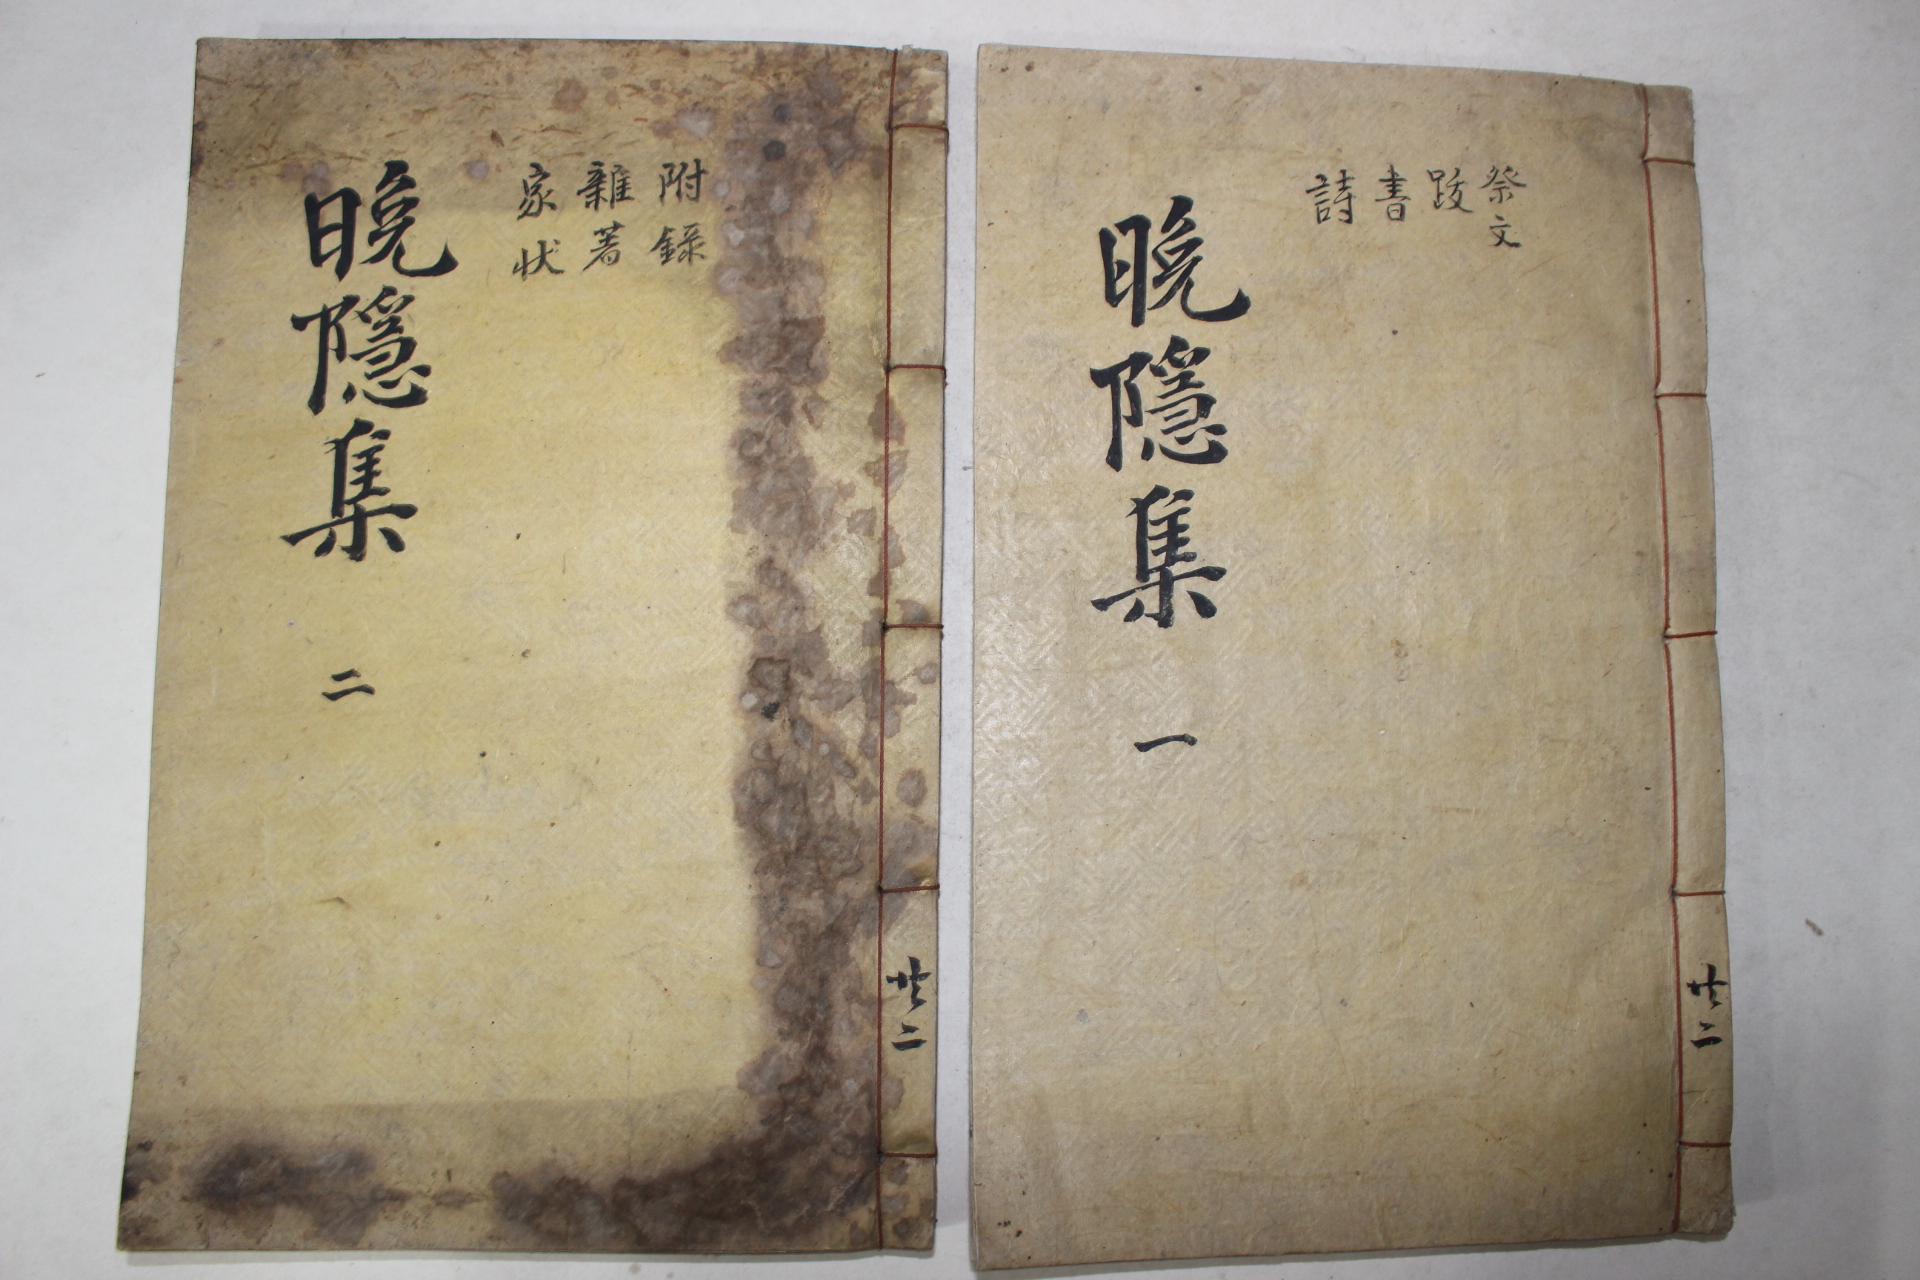 祭文
跋
書
詩
晩隱集 一
共二
附録
雜著
家状
晩隱集 二
共二